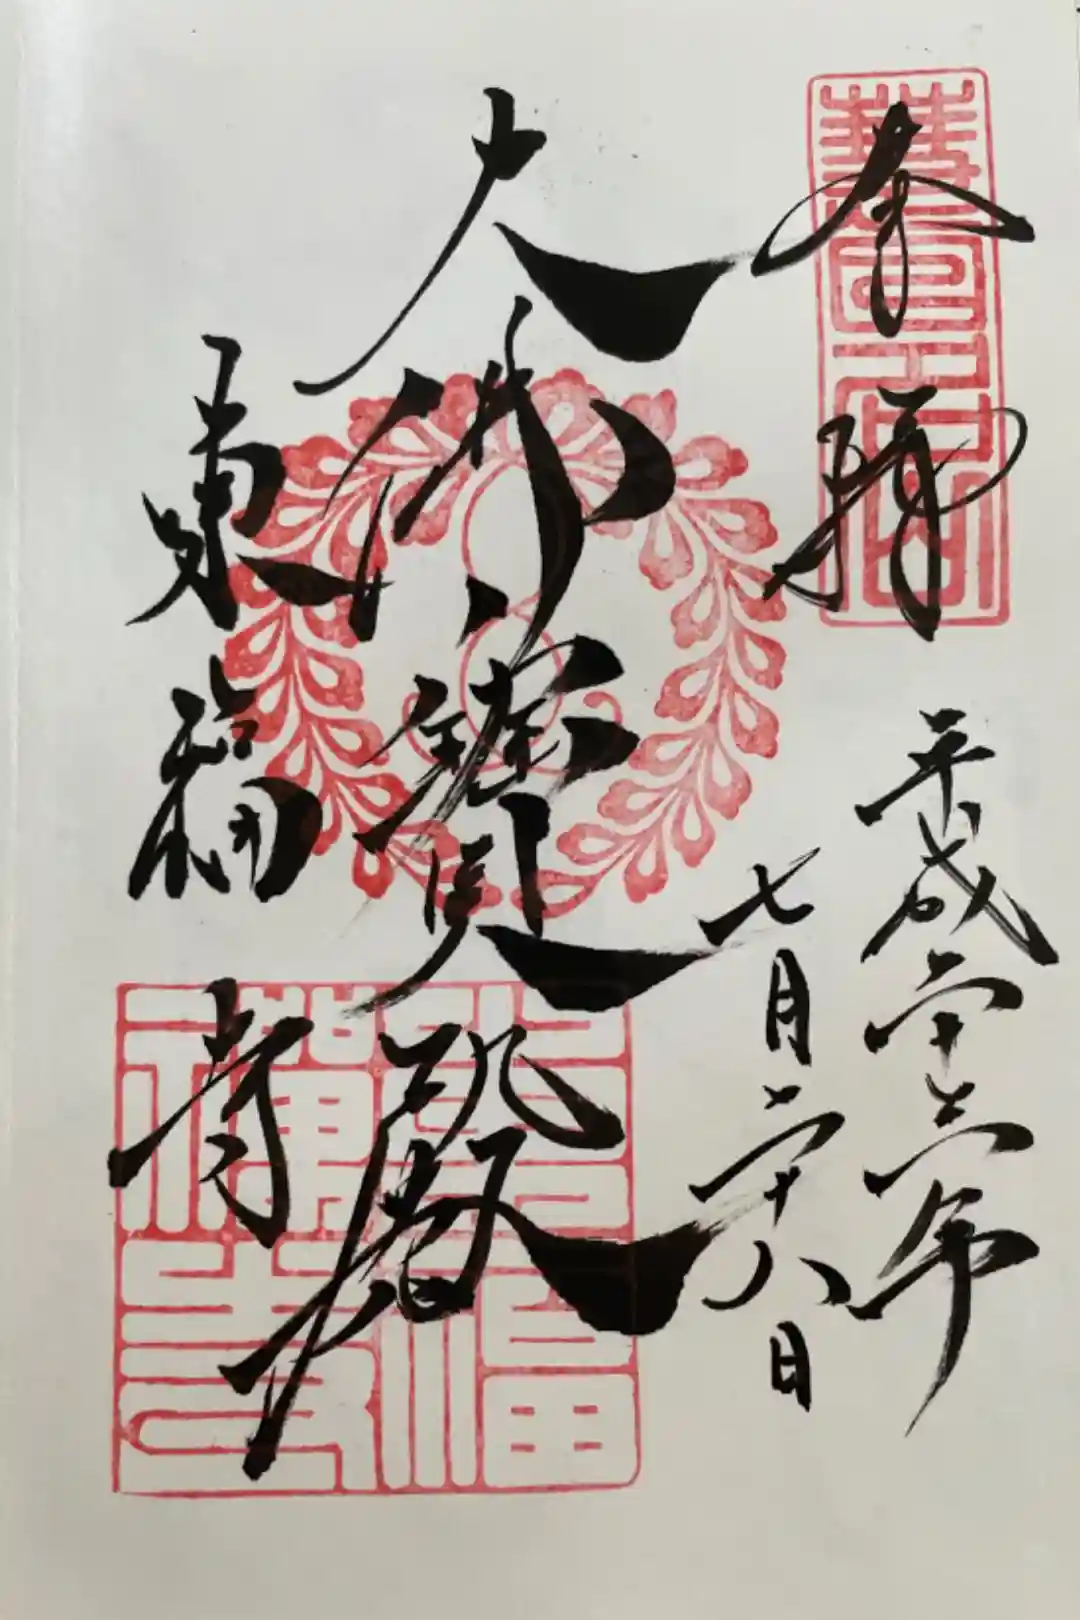 奉拝
平成二十三年
七月二十八日
大佛寳殿
東福寺